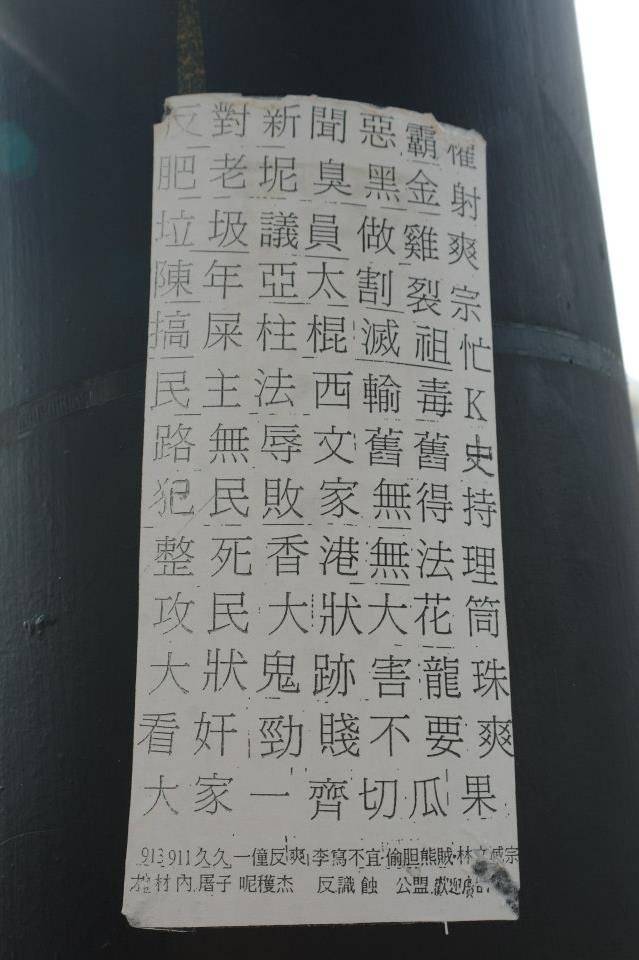 反對新聞惡霸權
肥老坭臭黑金射
垃圾議員做雞爽
陳年亞太割裂宗
搞屎柱棍滅祖忙
民主法西輸毒K
路無辱文舊舊史
犯民敗家無得持
整死香港無法理
攻民大狀大花筒
大狀鬼跡害龍珠
看奸勁賤不要爽
大家一齊切瓜果
913 911 久久 一僮反爽 李寫不宜 偷胆熊賊 林 宗
材內 屠子 呢穫杰 反識蝕 公盟 歡迎廣